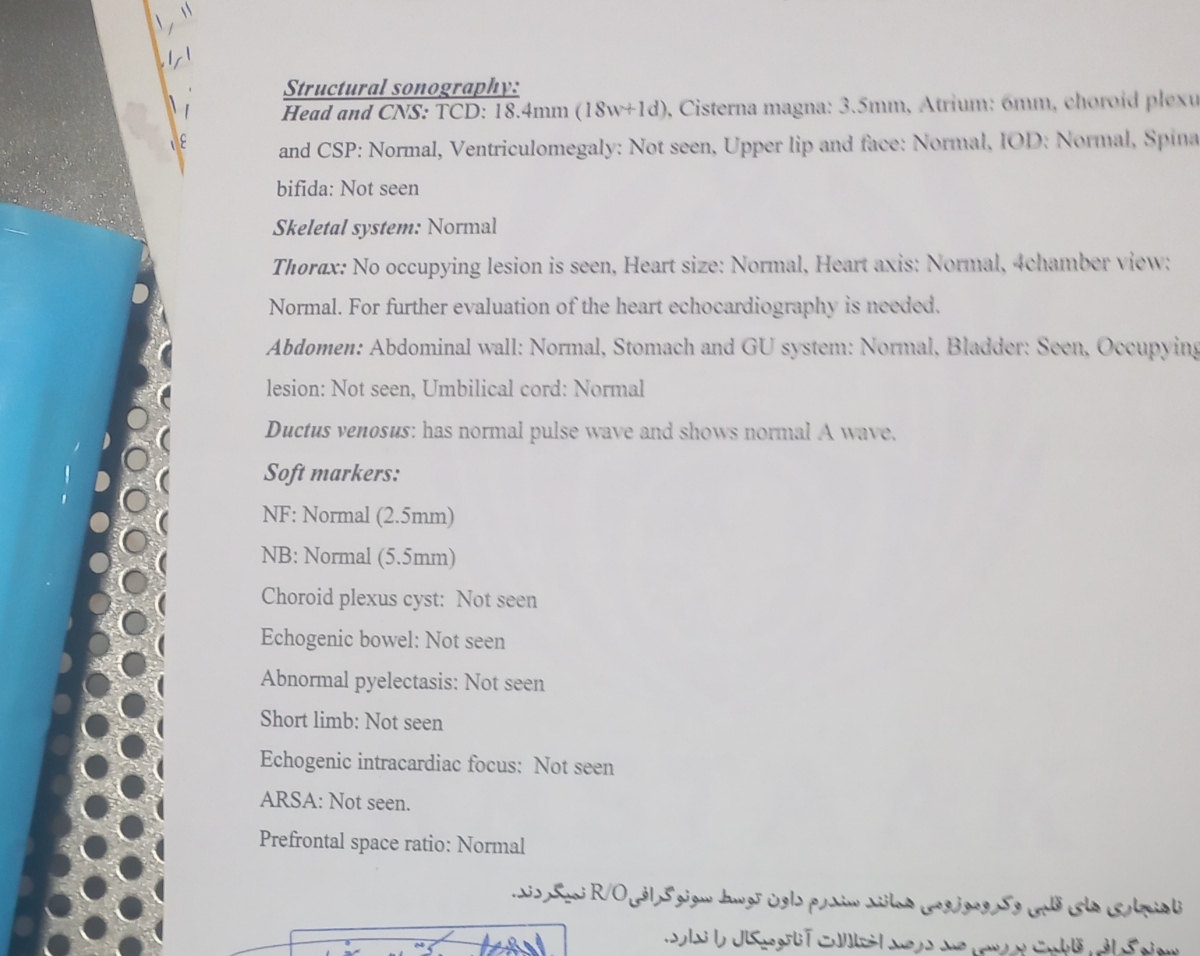 Structural sonography:
Head and CNS: TCD: 18.4mm (18w+1d), Cisterna magna: 3.5mm, Atrium: 6mm, choroid plexu
and CSP: Normal, Ventriculomegaly: Not seen, Upper lip and face: Normal, IOD: Normal, Spina
bifida: Not seen
Skeletal system: Normal
Thorax: No occupying lesion is seen, Heart size: Normal, Heart axis: Normal, 4chamber view:
Normal. For further evaluation of the heart echocardiography is needed.
Abdomen: Abdominal wall: Normal, Stomach and GU system: Normal, Bladder: Seen, Occupying
lesion: Not seen, Umbilical cord: Normal
Ductus venosus: has normal pulse wave and shows normal A wave.
Soft markers:
NF: Normal (2.5mm)
NB: Normal (5.5mm)
Choroid plexus cyst: Not seen
Echogenic bowel: Not seen
Abnormal pyelectasis: Not seen
Short limb: Not seen
Echogenic intracardiac focus: Not seen
ARSA: Not seen.
Prefrontal space ratio: Normal
ناهنجاری های قلبی وکروموزومی همانند سندرم داون توسط سونوگرافی R/O نمیگردند.
سونوگرافی قابلیت بررسی صد درصد اختلالات آناتومیکال را ندارد.